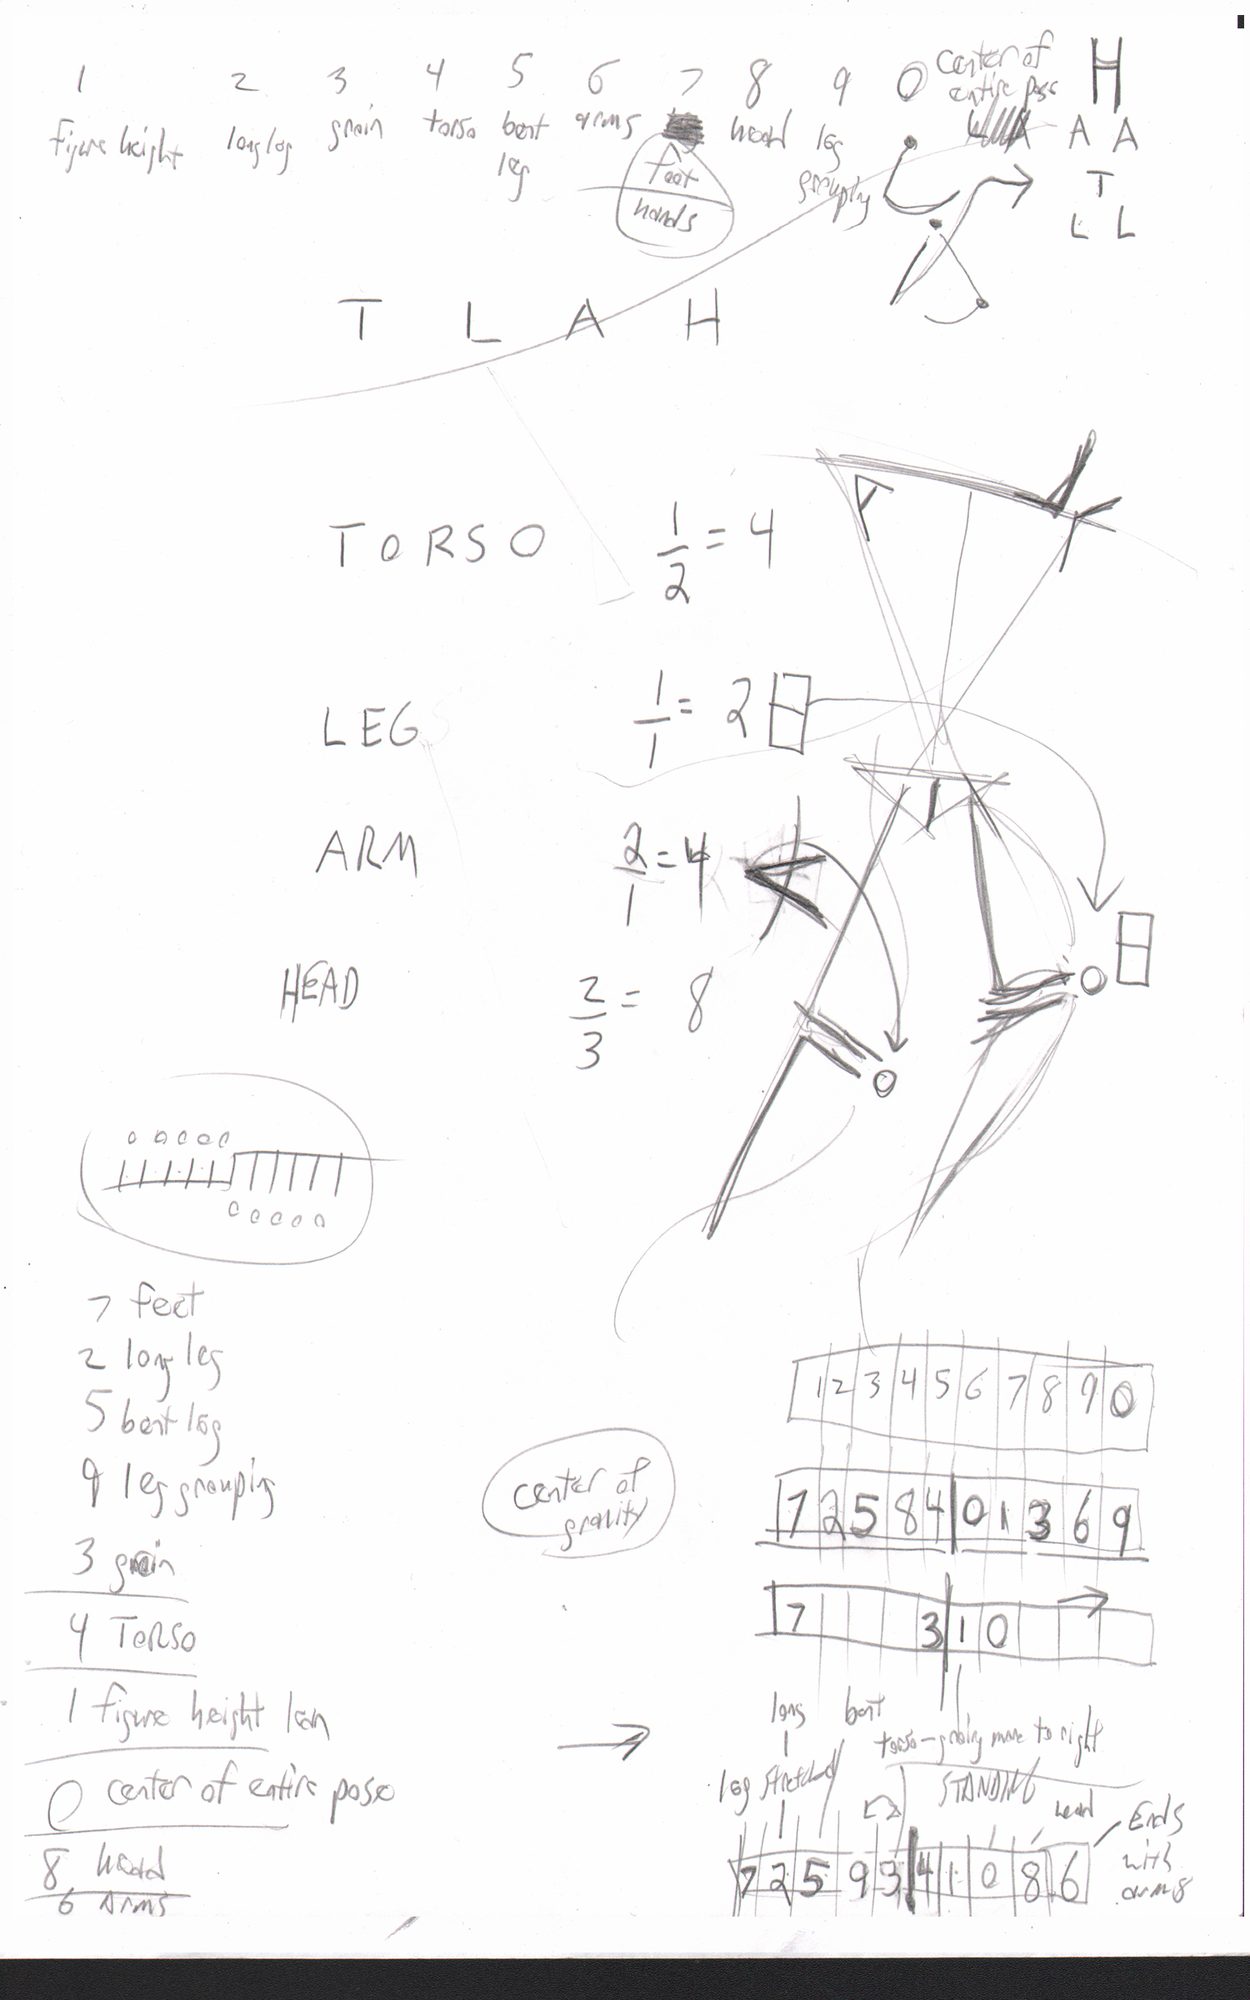 1 2 3 4 5 6 7 8 9 0
figure height long leg grain torso bent leg arms feet hands head leg grouping center of entire pose
H
A A
T
L L
T L A H
TORSO 1/2 = 4
LEG 1/1 = 2
ARM 2/1 = 4
HEAD 2/3 = 8
0
0
0 0 0 0 0
0 0 0 0 0
7 feet
2 long leg
5 bent leg
9 leg grouping
3 grain
4 TORSO
1 figure height lean
0 center of entire pose
8 head
6 ARMS
center of
gravity
1 2 3 4 5 6 7 8 9 0
7 2 5 8 4 0 1 3 6 9
7 3 1 0
long bent
torso - gravity more to right
leg stretched STANDING
head
Ends
with
arms
7 2 5 9 3 4 1 0 8 6